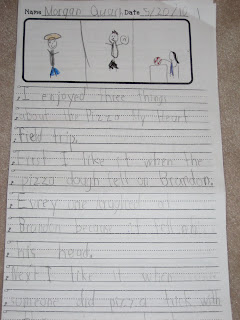 Name Morgan Date 5/20/16
I enjoyed three things
about the Pizza My Heart
Field trip.
First I like it when the
pizza dough fell on Brandon.
Evrey one
Brandon because it fell on
his head.
Next I like it when
someone did pizza trick with